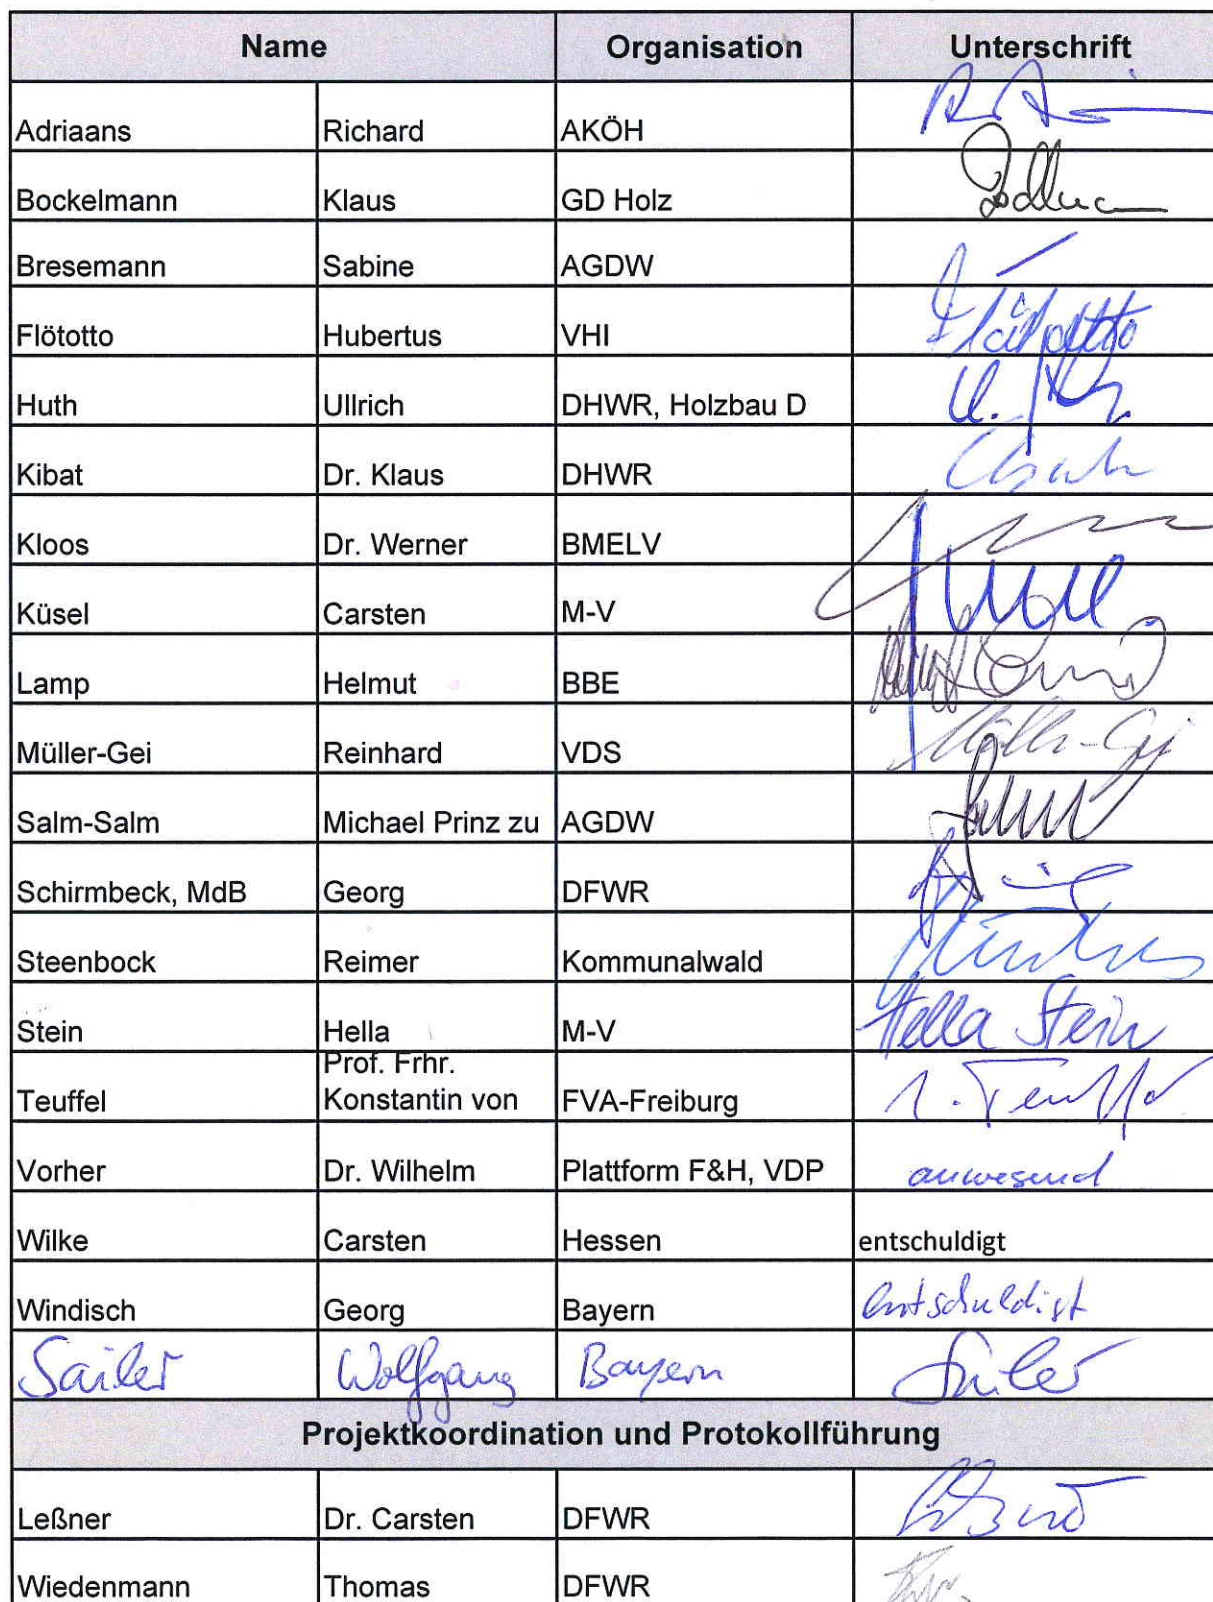 Name Organisation Unterschrift
Adriaans Richard AKÖH
Bockelmann Klaus GD Holz
Bresemann Sabine AGDW
Flötotto Hubertus VHI Flötotto
Huth Ullrich DHWR, Holzbau D
Kibat Dr. Klaus DHWR
Kloos Dr. Werner BMELV
Küsel Carsten M-V
Lamp Helmut BBE
Müller-Gei Reinhard VDS Müller-Gei
Salm-Salm Michael Prinz zu AGDW
Schirmbeck, MdB Georg DFWR
Steenbock Reimer Kommunalwald
Stein Hella M-V Hella Stein
Prof. Frhr.
Teuffel Konstantin von FVA-Freiburg
Vorher Dr. Wilhelm Plattform F&H, VDP anwesend
Wilke Carsten Hessen entschuldigt
Windisch Georg Bayern entschuldigt
Sailer Wolfgang Bayern Sailer
Projektkoordination und Protokollführung
Leßner Dr. Carsten DFWR
Wiedenmann Thomas DFWR